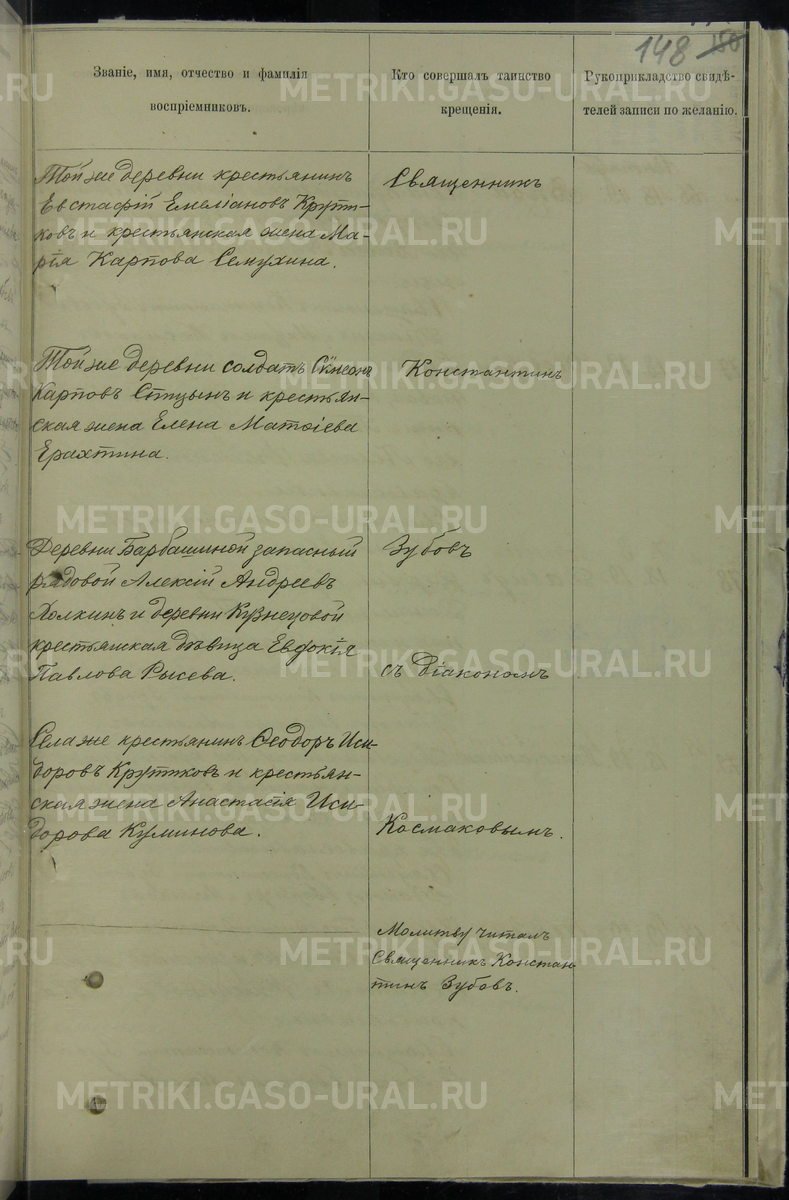 148 180
Званіе, имя, отчество и фамилія
воспріемниковъ.
Кто совершалъ таинство
крещенія.
Рукоприкладство свидѣ-
телей записи по желанію.
Той же деревни крестьянинъ
Евстафій Емеліановъ Крути-
ковъ и крестьянская жена Ма-
рія Карпова Семухина.
Священникъ
Той же деревни солдатъ Сѵмеонъ
Карповъ Спицынъ и крестьян-
ская жена Елена Матѳіева
Ерахтина.
Константинъ
Деревни Барбашиной запасный
рядовой Алексій Андреевъ
Холкинъ и деревни Кузнецовой
крестьянская дѣвица Евдокія
Павлова Рысева.
Зубовъ
съ Діакономъ
Села же крестьянинъ Ѳеодоръ Иси-
доровъ Крутиковъ и крестьян-
ская жена Анастасія Иси-
дорова Куминова.
Космаковымъ.
Молитву читалъ
Священникъ Констан-
тинъ Зубовъ.
METRIKI.GASO-URAL.RU